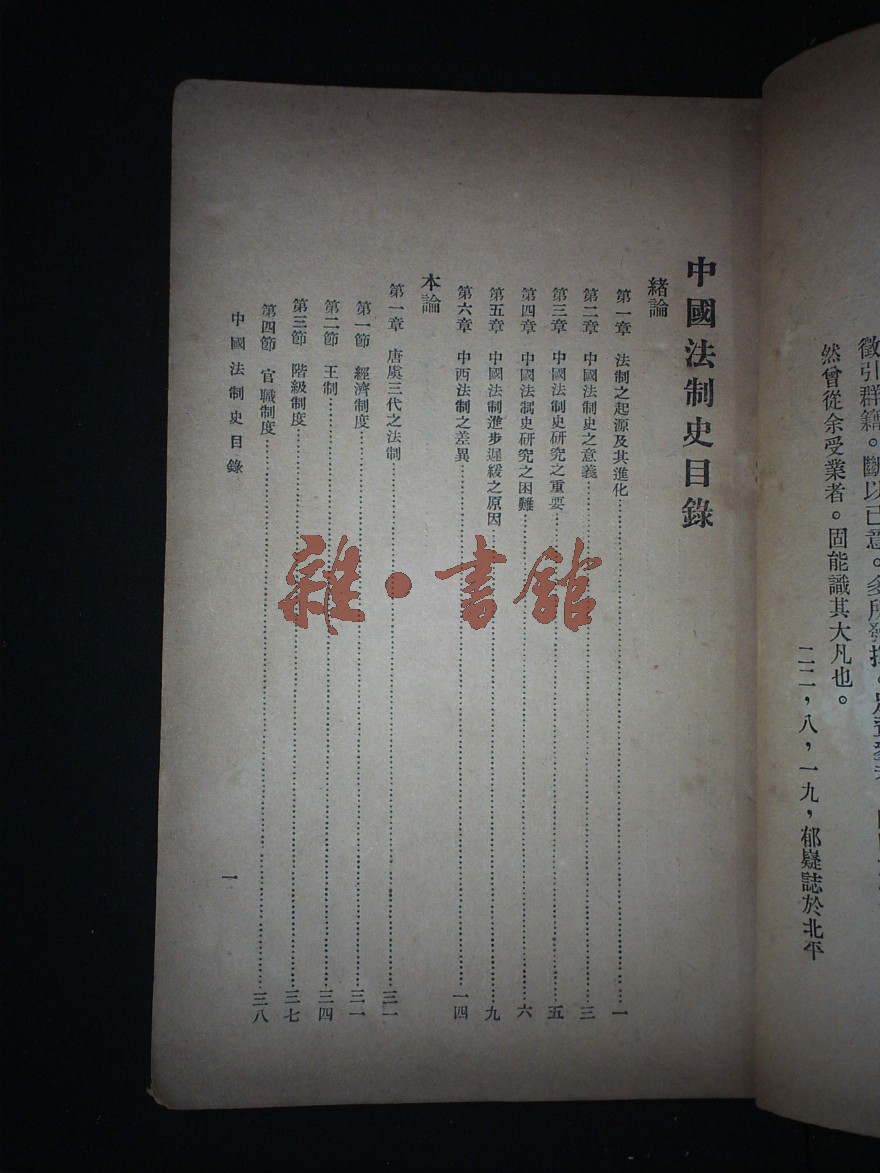 徵引群籍。斷以己意。多所發揮。
然曾從余受業者。固能識其大凡也。
二二，八，一九，郁嶷誌於北平
中國法制史目錄
緒論
第一章 法制之起源及其進化……一
第二章 中國法制史之意義……三
第三章 中國法制史研究之重要……五
第四章 中國法制史研究之困難……六
第五章 中國法制進步遲緩之原因……九
第六章 中西法制之差異……一四
本論
第一章 唐虞三代之法制……三一
第一節 經濟制度……三一
第二節 王制……三四
第三節 階級制度……三七
第四節 官職制度……三八
中國法制史目錄
一
雜·書館